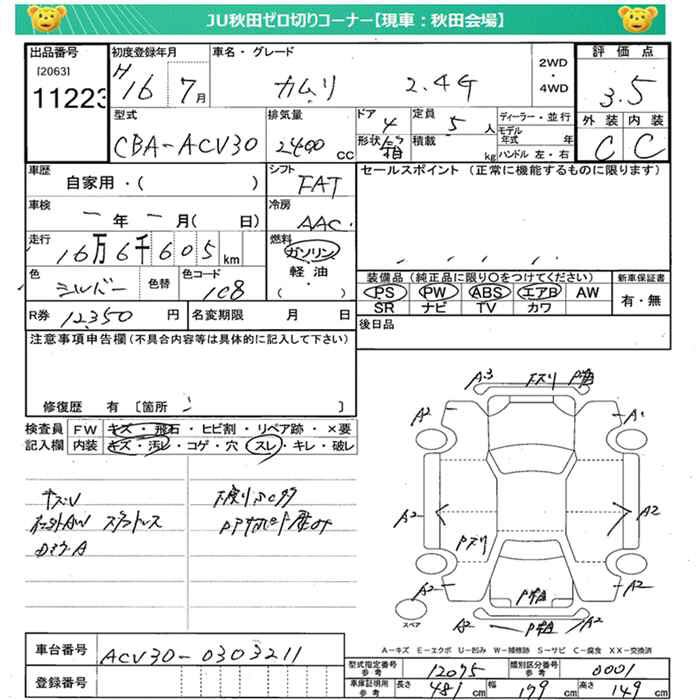 JU秋田ゼロ切りコーナー【現車：秋田会場】
出品番号
[2063]
11223
初度登録年月
H 16 7月
車名・グレード
カムリ 2.4G
2WD・4WD
評価点
3.5
外装 内装
C C
型式
CBA-ACV30
排気量
2400 cc
ドア 4
形状 箱
定員 5 人
積載 kg
ディーラー・並行
モデル年式 年
ハンドル 左・右
車歴
自家用・( )
シフト
FAT
セールスポイント (正常に機能するものに限ります)
車検
ー年ー月( 日)
冷房
AAC
走行
16万6千605km
燃料
ガソリン・軽油・( )
色
シルバー
色替
色コード
1C8
装備品（純正品に限り○をつけてください）
PS PW ABS エアB AW
SR ナビ TV カワ
新車保証書
有・無
R券 12,350 円
名変期限 月 日
後日品
注意事項申告欄(不具合内容等は具体的に記入して下さい)
修復歴 有〔箇所 〕
検査員記入欄
FW キズ・飛石・ヒビ割・リペア跡・×要
内装 キズ・汚レ・コゲ・穴・スレ・キレ・破レ
A-3
A2
A1
A2
A2
A2
A2
A2
A2
スペア
A-キズ E-エクボ U-凹み W-補修跡 S-サビ C-腐食 XX-交換済
車台番号
ACV30-0303211
登録番号
型式指定番号 参考 12075
類別区分番号 参考 0001
車庫証明用 参考 長さ 481 cm 幅 179 cm 高さ 149 cm